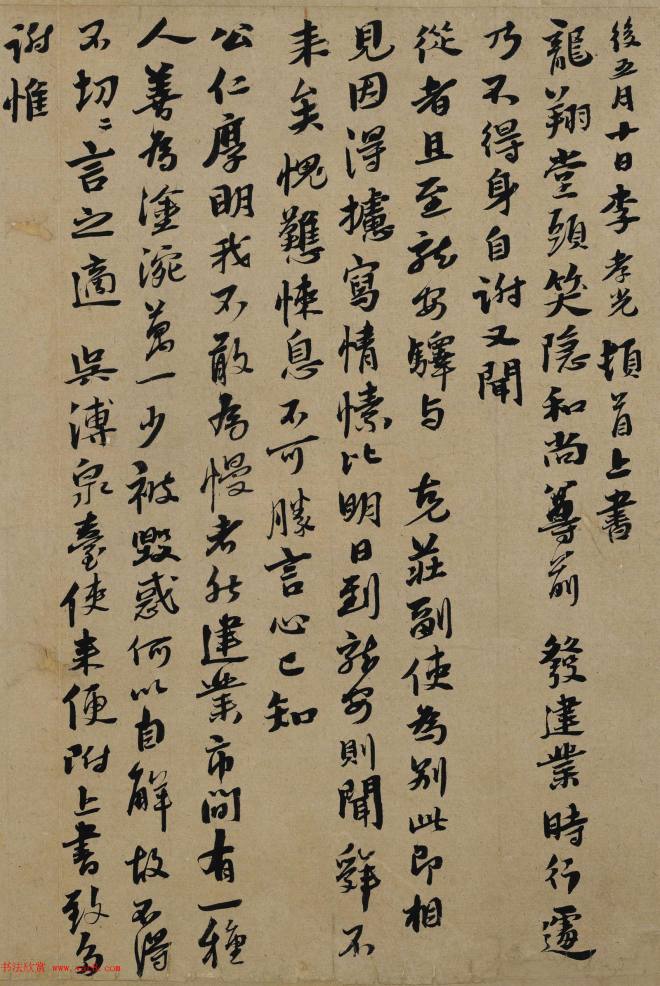 後五月十日李孝光頓首上書
龍翔堂頭笑隱和尚尊前 發建業時行遽
乃不得身自謝又聞
從者且至龍安驛与 克莊副使為別此即相
見因得攄寫情愫比明日到龍安則聞舜不
来矣愧戁悚息不可勝言心已知
公仁厚明我不敢為慢者然建業市間有一種
人善為塗涴万一少被毀惑何以自解故不得
不切〻言之適 吳溥泉臺使来便附上書致多
謝惟
书法欣赏